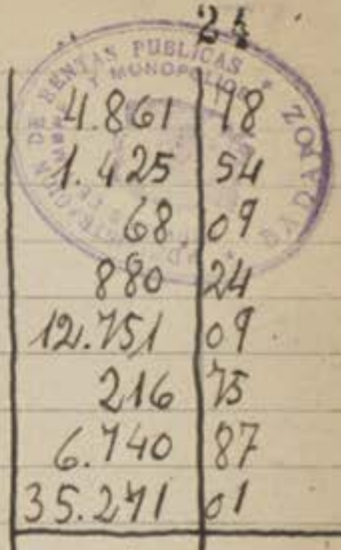 24
RENTAS PUBLICAS
Y MONOPOLIOS
BADAJOZ
4.861 78
1.425 54
68 09
880 24
12.751 09
216 75
6.740 87
35.271 01